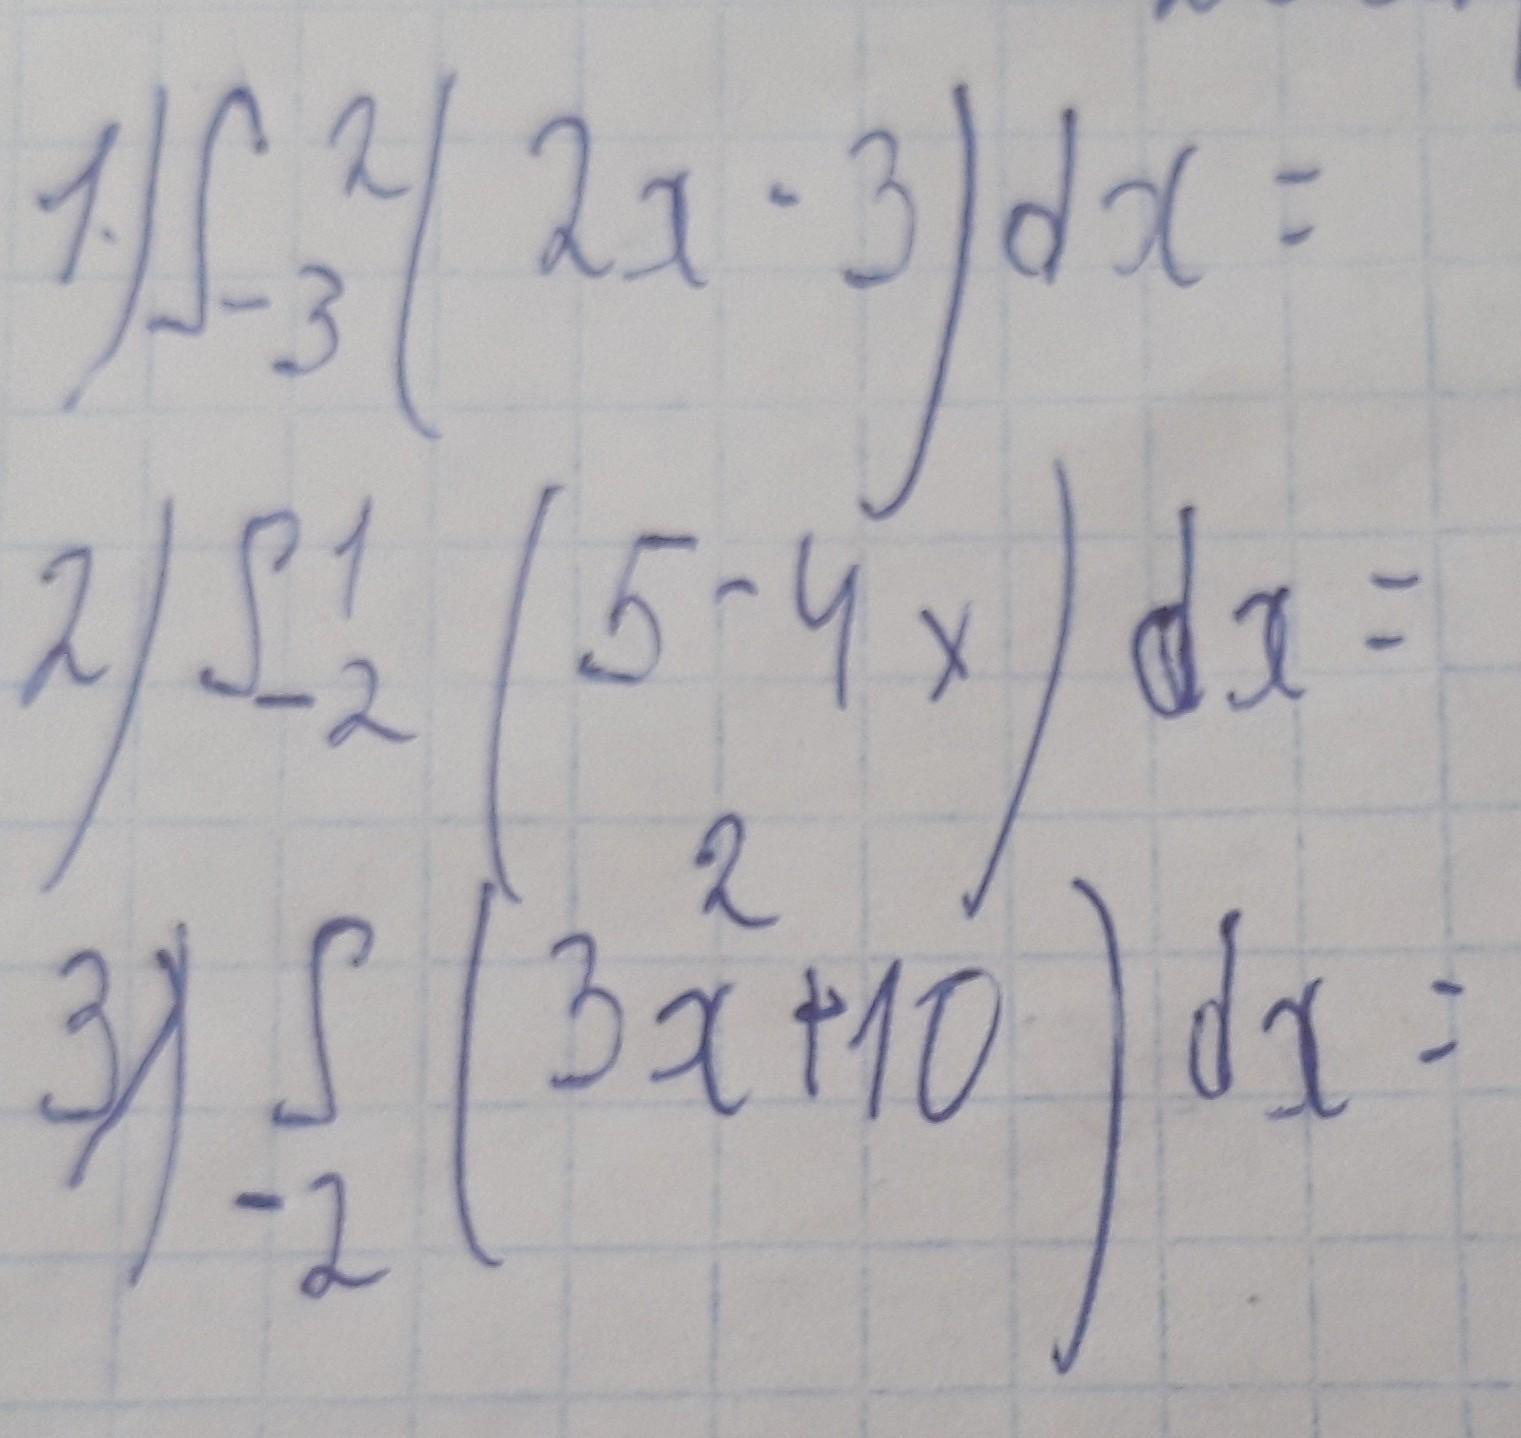 1.) ∫₋₃² (2x - 3) dx =
2) ∫₋₂¹ (5 - 4x) dx =
2
3) ∫₋₂ (3x + 10) dx =